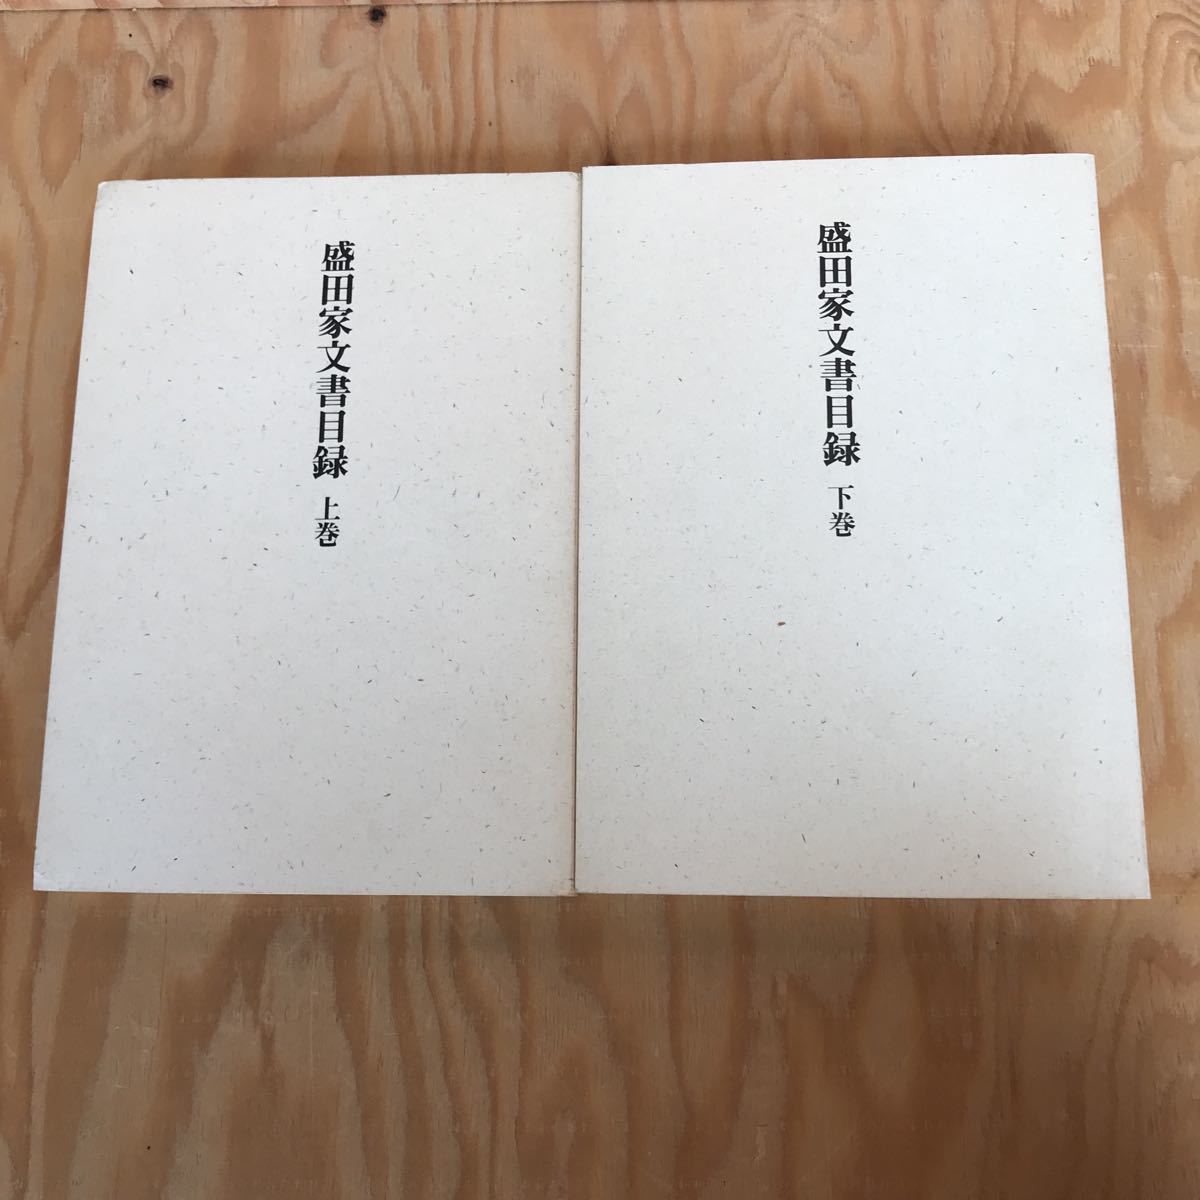 盛田家文書目録 上巻
盛田家文書目録 下巻